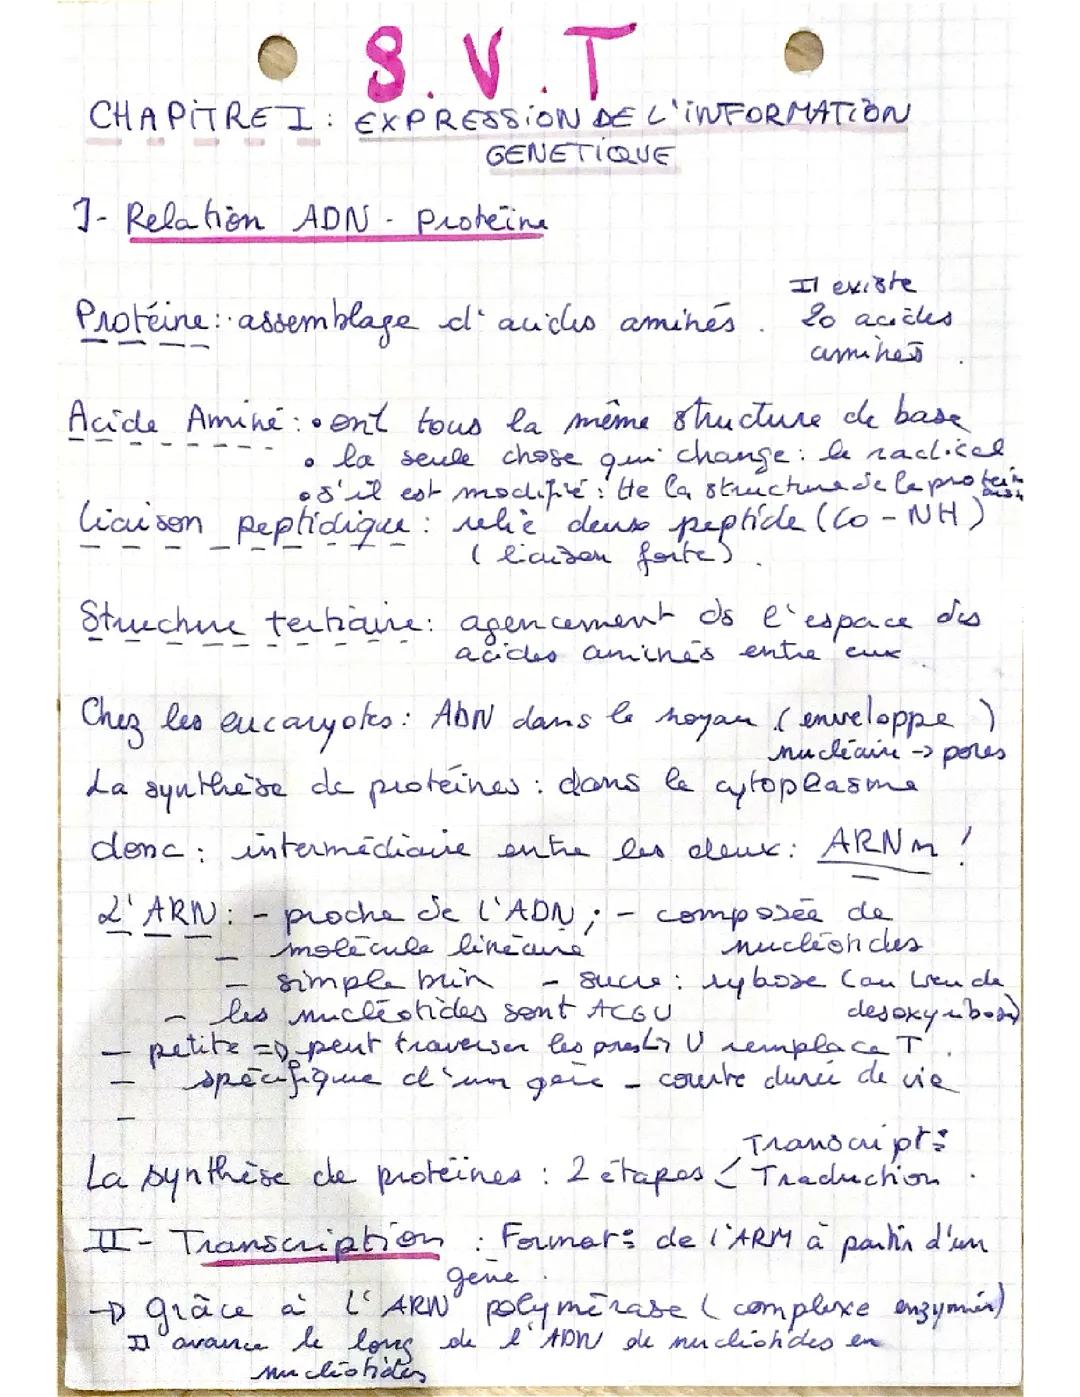 S.V.T
CHAPITRE I : EXPRESSION DE L'INFORMATION
GENETIQUE
I- Relation ADN - Protéine
Protéine : assemblage d'acides aminés. Il existe
20 acides
aminés.
Acide Aminé : • ont tous la même structure de base
• la seule chose qui change : le radical
• s'il est modifié : tte la structure de la protéine
Liaison peptidique : relie deux peptide (CO - NH)
(liaison forte).
Structure tertiaire : agencement ds l'espace des
acides aminés entre eux.
Chez les eucaryotes : ADN dans le noyau (enveloppe)
nucléaire -> pores
La synthèse de protéines : dans le cytoplasme
donc : intermédiaire entre les deux : ARNm !
L'ARN : - proche de l'ADN ; - composée de
- molécule linéaire nucléotides
- simple brin - sucre : rybose (au lieu de
- les nucléotides sont ACGU desoxyribose)
- petite => peut traverser les U remplace T.
- spécifique d'un gène - courte durée de vie
-
La synthèse de protéines : 2 étapes < Transcript°
Traduction.
II- Transcription : Format° de l'ARM à partir d'un
gène.
-> Grâce à l'ARN polymérase (complexe enzymatique)
Il avance le long de l'ADN de nucléotides en
nucléotides